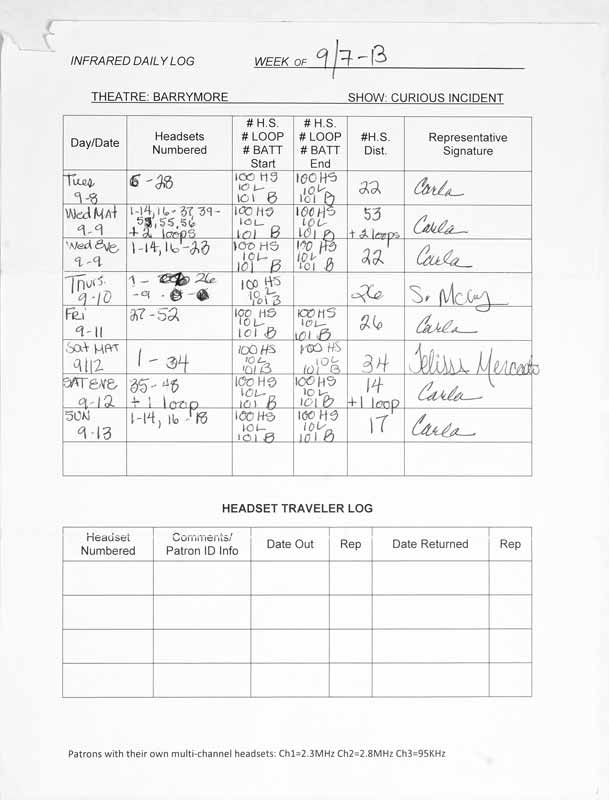 INFRARED DAILY LOG WEEK OF 9/7-13
THEATRE: BARRYMORE SHOW: CURIOUS INCIDENT
Day/Date
Headsets
Numbered
# H.S.
# LOOP
# BATT
Start
# H.S.
# LOOP
# BATT
End
#H.S.
Dist.
Representative
Signature
Tues
9-8
6-28
100 HS
10L
101 B
100 HS
10L
101 B
22
Carla
Wed MAT
9-9
1-14, 16-37, 39-
53, 55, 56
+ 2 loops
100 HS
10L
101 B
100 HS
10L
101 B
53
+2 loops
Carla
Wed Eve
9-9
1-14, 16-23
100 HS
10L
101 B
100 HS
10L
101 B
22
Carla
Thurs.
9-10
1- 26
100 HS
10L
101 B
26
S. McCoy
Fri
9-11
27-52
100 HS
10L
101 B
100 HS
10L
101 B
26
Carla
Sat MAT
9/12
1-34
100 HS
10L
101 B
100 HS
10L
101 B
34
Mercado
SAT EVE
9-12
35-48
+1 loop
100 HS
10L
101 B
100 HS
10L
101 B
14
+1 loop
Carla
SUN
9-13
1-14, 16-18
100 HS
10L
101 B
100 HS
10L
101 B
17
Carla
HEADSET TRAVELER LOG
Headset
Numbered
Comments/
Patron ID Info
Date Out
Rep
Date Returned
Rep
Patrons with their own multi-channel headsets: Ch1=2.3MHz Ch2=2.8MHz Ch3=95KHz